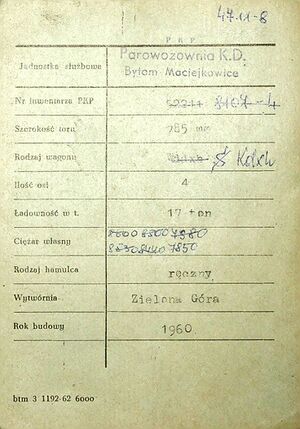 47.11-8
PKP
Parowozownia K.D.
Jednostka służbowa
Bytom Maciejkowice
Nr inwentarza PKP 8107-4
Szerokość toru 785 mm
Rodzaj wagonu Kdxh
Ilość osi 4
Ładowność w t. 17 ton
Ciężar własny 8600 8800 7980
8840 7850
Rodzaj hamulca ręczny
Wytwórnia Zielona Góra
Rok budowy 1960
btm 3 1192-62 6000